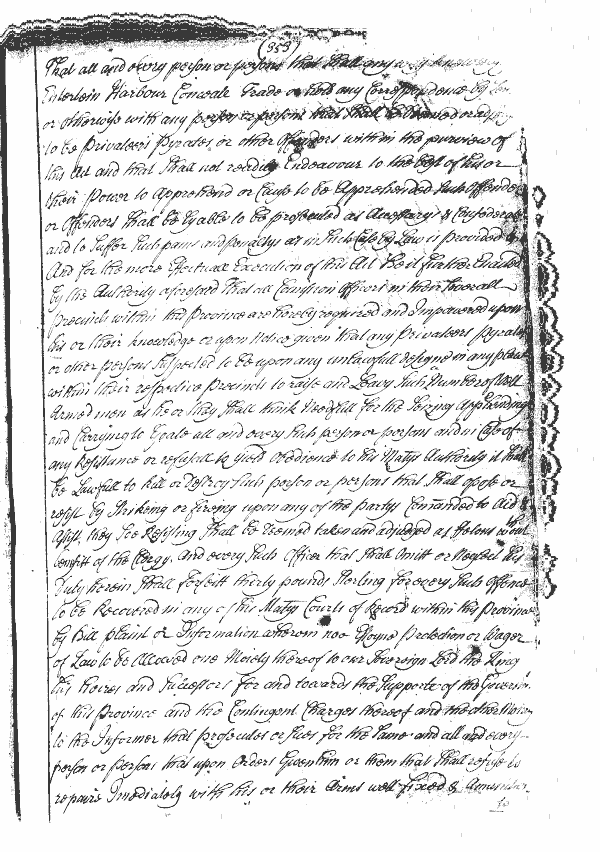 (353)
That all and every person or persons that Shall any way knowingly
Entertein Harbour Conceale Trade or hold any Correspondence by
or otherwise with any person or persons that Shall be deemed or
to be Privateers Pyrates or other Offenders within the purview of
this Act and that Shall not readily Endeavour to the best of his or
their Power to Apprehend or Cause to be Apprehended Such Offender
or Offenders Shall be Lyable to be prosecuted as Accessary & Confederate
and to Suffer Such pains and penaltys as in Such Case by Law is provided &
And for the more Effectuall Execution of this Act Be it further Enacted
by the Authority aforesaid That all Comission Officers in their Severall
Precincts within this Province are hereby required and Impowered upon
his or their knowledge or upon Notice given that any Privateers Pyrates
or other persons Suspected to be upon any unlawfull designe in any place
within their respective Precincts to raise and Leavy Such Number of well
Armed men as he or they Shall think Needfull for the Seizing Apprehending
and Carrying to Goale all and every Such person or persons and in Case of
any Resistance or refusall to Yield obedience to his Matys Authority it Shall
be Lawfull to kill or destroy Such person or persons that Shall opose or
resist by Strikeing or fireing upon any of the partys Comanded to Aid &
Assist, they Soe Resisting Shall be deemed taken and adjudged as Felons wthout
benefitt of the Clergy, And every Such Officer that Shall Omitt or Neglect his
Duty herein Shall forfeitt thirty pounds Sterling for every Such Offence
to be Recovered in any of his Matys Courts of Record within this Province
by Bill plaint or Information wherein noe Essoyne Protection or Wager
of Law to be Allowed one Moiety thereof to our Sovereign Lord the King
his heires and Successors For and towards the Supporte of the Governmt
of this Province and the Contingent Charges thereof and the other Moiety
to the Informer that prosecutes or Sues for the Same and all and every
person or persons that upon Orders Given him or them that Shall refuse to
repaire Imediately with his or their Arms well fixed & Amunition
to